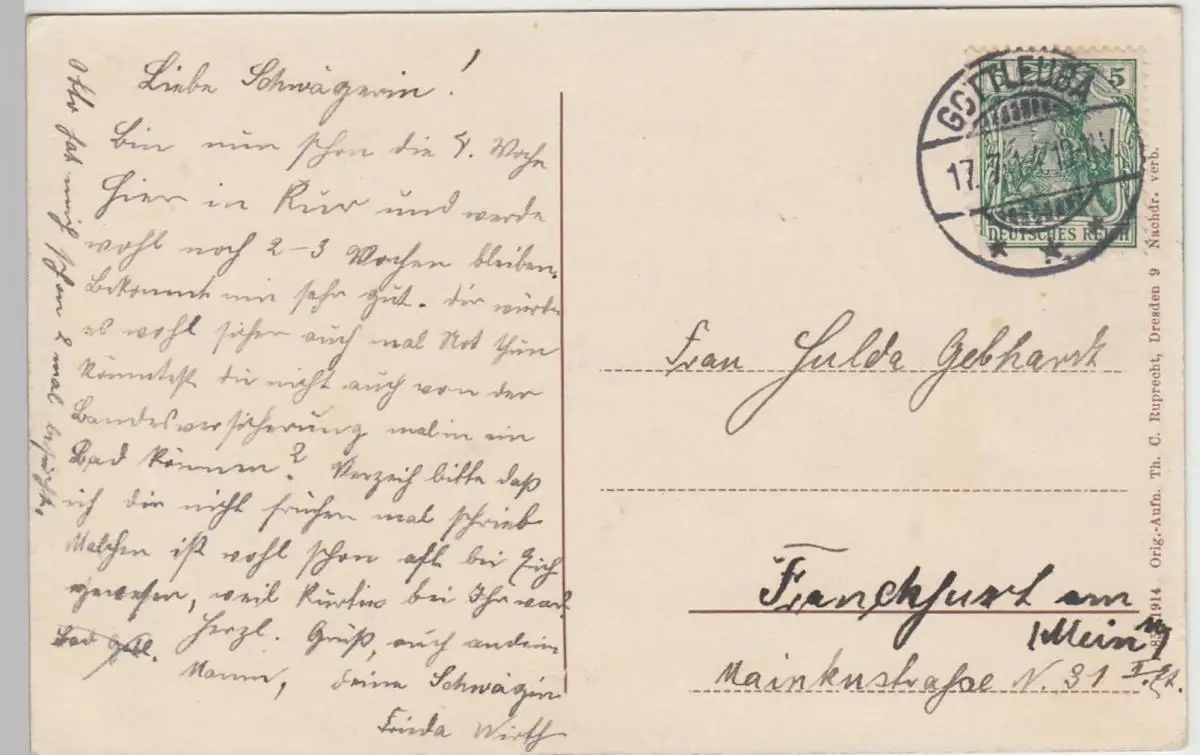 Liebe Schwägerin!
Bin nun schon die 4. Woche
hier in Kur und werde
wohl noch 2-3 Wochen bleiben.
Bekommt mir sehr gut. dir würde
es wohl sicher auch mal Not thun
Könntest du nicht auch von der
Landesversicherung mal in ein
Bad können? Verzeih bitte daß
ich dir nicht früher mal schrieb
Malchen ist wohl schon oft bei Euch
gewesen, weil bei Ihr war.
Herzl. Gruß, auch an dein
Mann, deine Schwägin
Frieda Wirth
Bad Gottl.
Otto hat mich schon 2 mal besucht.
GOTTLEUBA
17.7.
5
DEUTSCHES REICH
Frau Hulda Gebhardt
Franckfurt am
(Mein)
Mainkustraße N. 31 II. Et.
1914 Orig.-Aufn. Th. C. Ruprecht, Dresden 9 Nachdr. verb.